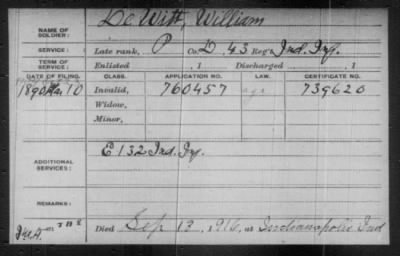 De Witt, William
NAME OF SOLDIER:
SERVICE: Late rank, P Co. D, 43 Reg't Ind. Inf.
TERM OF SERVICE: Enlisted , 1 Discharged , 1
DATE OF FILING. CLASS. APPLICATION NO. LAW. CERTIFICATE NO.
1890 10 Invalid, 760457 739620
Widow,
Minor,
E 132 Ind. Inf.
ADDITIONAL SERVICES:
Died Sep 13, 1916, at Indianapolis Ind